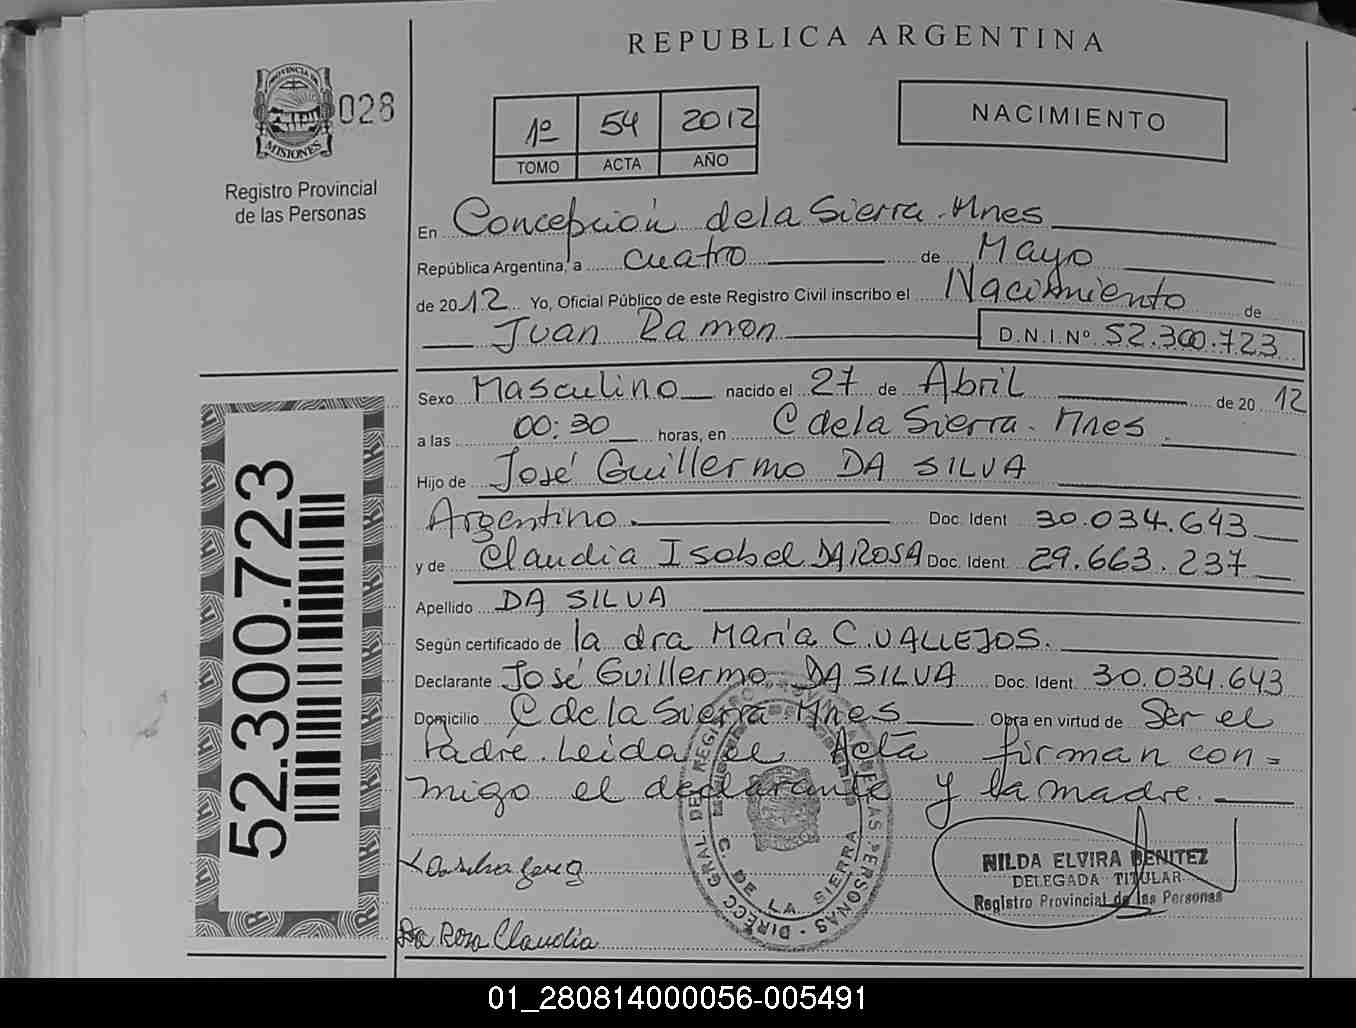 REPUBLICA ARGENTINA
PROVINCIA DE
MISIONES
028
Registro Provincial
de las Personas
1º 54 2012
TOMO ACTA AÑO
NACIMIENTO
En Concepción de la Sierra. Mnes
República Argentina, a cuatro de Mayo
de 2012 Yo, Oficial Público de este Registro Civil inscribo el Nacimiento de
Juan Ramon D.N.I.Nº 52.300.723
Sexo Masculino nacido el 27 de Abril de 20 12
a las 00:30 horas, en C de la Sierra. Mnes
Hijo de José Guillermo DA SILVA
Argentino. Doc. Ident 30.034.643
y de Claudia Isabel DA ROSA Doc. Ident. 29.663.237
Apellido DA SILVA
Según certificado de la dra María C. VALLEJOS.
Declarante José Guillermo DA SILVA Doc. Ident. 30.034.643
Domicilio C de la Sierra Mnes Obra en virtud de Ser el
Padre. Leida el Acta firman con=
migo el declarante y la madre.
52.300.723
C. DE LA SIERRA
NILDA ELVIRA BENITEZ
DELEGADA TITULAR
Registro Provincial de las Personas
Da Rosa Claudia
01_280814000056-005491